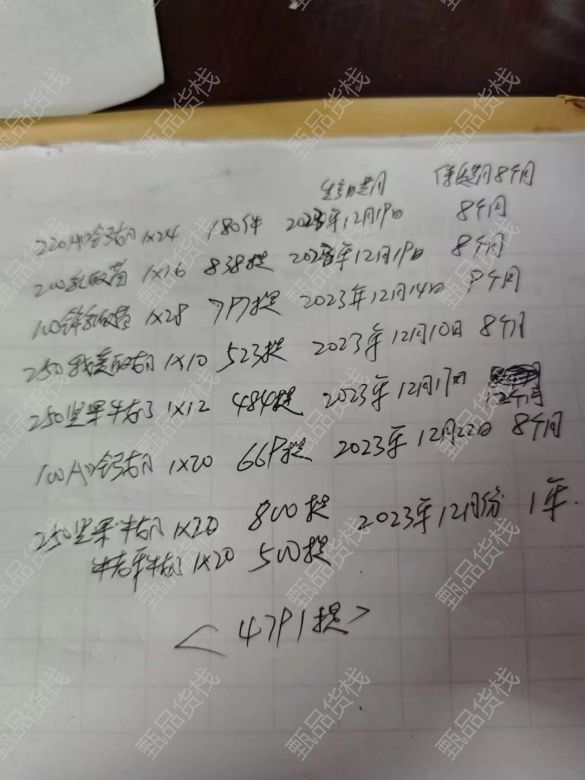 生产日期 保质期8个月
220AD钙奶 1×24 180件 2023年12月19日 8个月
200乳酸菌 1×16 838提 2023年12月19日 8个月
100锌乳酸菌 1×28 797提 2023年12月14日 9个月
250我养酸奶 1×10 523提 2023年12月10日 8个月
250坚果牛奶 1×12 484提 2023年12月17日 12个月
100AD钙奶 1×20 669提 2023年12月22日 8个月
250坚果牛奶 1×20 800提 2023年12月份 1年
牛奶 1×20 500提
<4791提>
甄品货栈